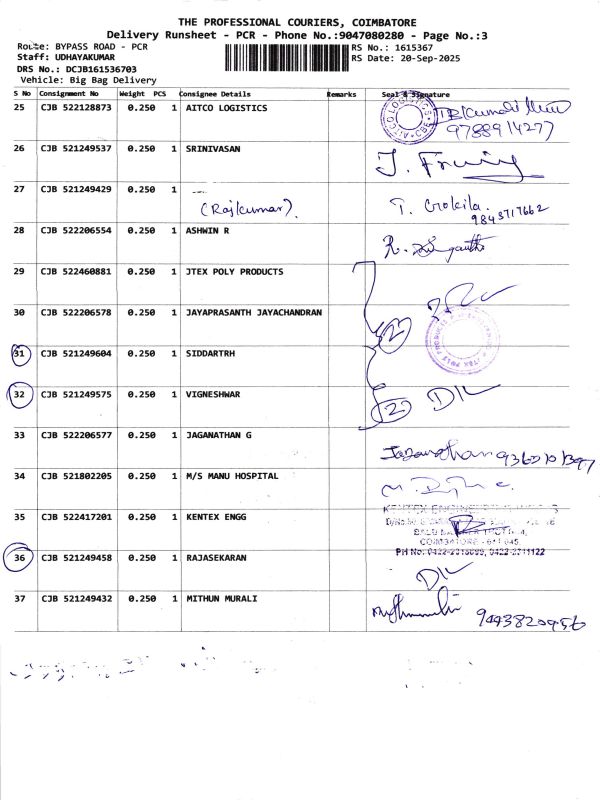 THE PROFESSIONAL COURIERS, COIMBATORE
Delivery Runsheet - PCR - Phone No.:9047080280 - Page No.:3
Route: BYPASS ROAD - PCR RS No.: 1615367
Staff: UDHAYAKUMAR RS Date: 20-Sep-2025
DRS No.: DCJB161536703
Vehicle: Big Bag Delivery
S No Consignment No Weight PCS Consignee Details Remarks Seal & Signature
25 CJB 522128873 0.250 1 AITCO LOGISTICS
9788914277
26 CJB 521249537 0.250 1 SRINIVASAN
27 CJB 521249429 0.250 1
(Rajkumar). T. Gokila.
9843717662
28 CJB 522206554 0.250 1 ASHWIN R
29 CJB 522460881 0.250 1 JTEX POLY PRODUCTS
30 CJB 522206578 0.250 1 JAYAPRASANTH JAYACHANDRAN
31 CJB 521249604 0.250 1 SIDDARTRH
32 CJB 521249575 0.250 1 VIGNESHWAR
33 CJB 522206577 0.250 1 JAGANATHAN G
34 CJB 521802205 0.250 1 M/S MANU HOSPITAL
35 CJB 522417201 0.250 1 KENTEX ENGG
36 CJB 521249458 0.250 1 RAJASEKARAN
D/L
37 CJB 521249432 0.250 1 MITHUN MURALI
9443820956